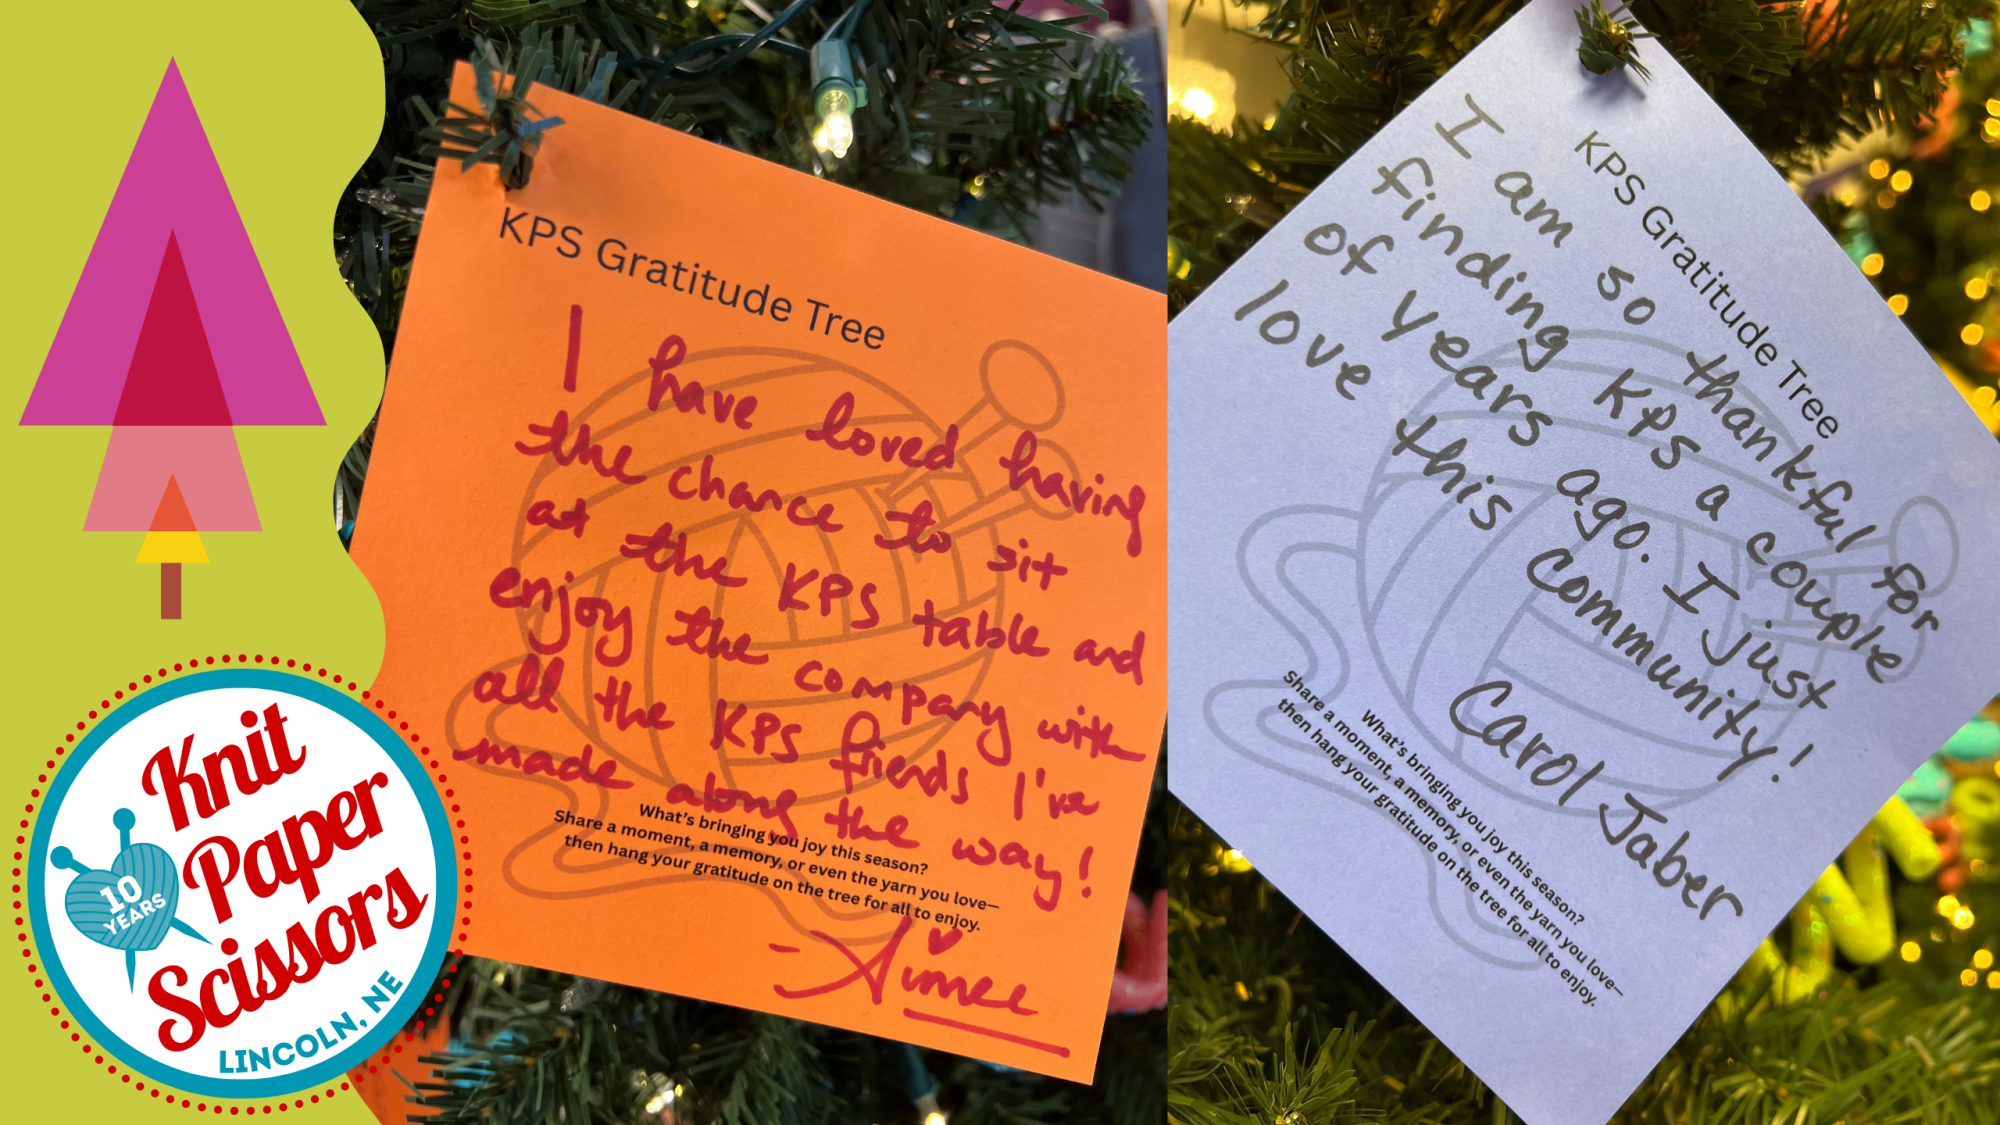 KPS Gratitude Tree
I have loved having
the chance to sit
at the KPS table and
enjoy the company with
all the KPS friends I've
made along the way!
What's bringing you joy this season?
Share a moment, a memory, or even the yarn you love—
then hang your gratitude on the tree for all to enjoy.
-Aimee
KPS Gratitude Tree
I am so thankful for
finding KPS a couple
of years ago. I just
love this community!
Carol Jaber
What's bringing you joy this season?
Share a moment, a memory, or even the yarn you love—
then hang your gratitude on the tree for all to enjoy.
Knit
Paper
Scissors
10
YEARS
LINCOLN, NE